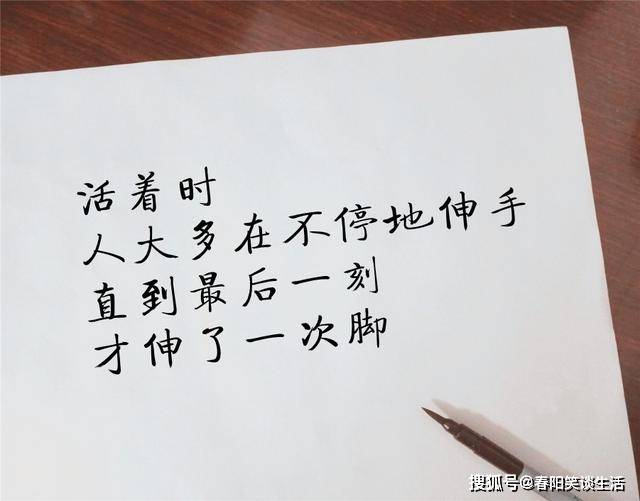 活着时
人大多在不停地伸手
直到最后一刻
才伸了一次脚
搜狐号@春阳笑谈生活